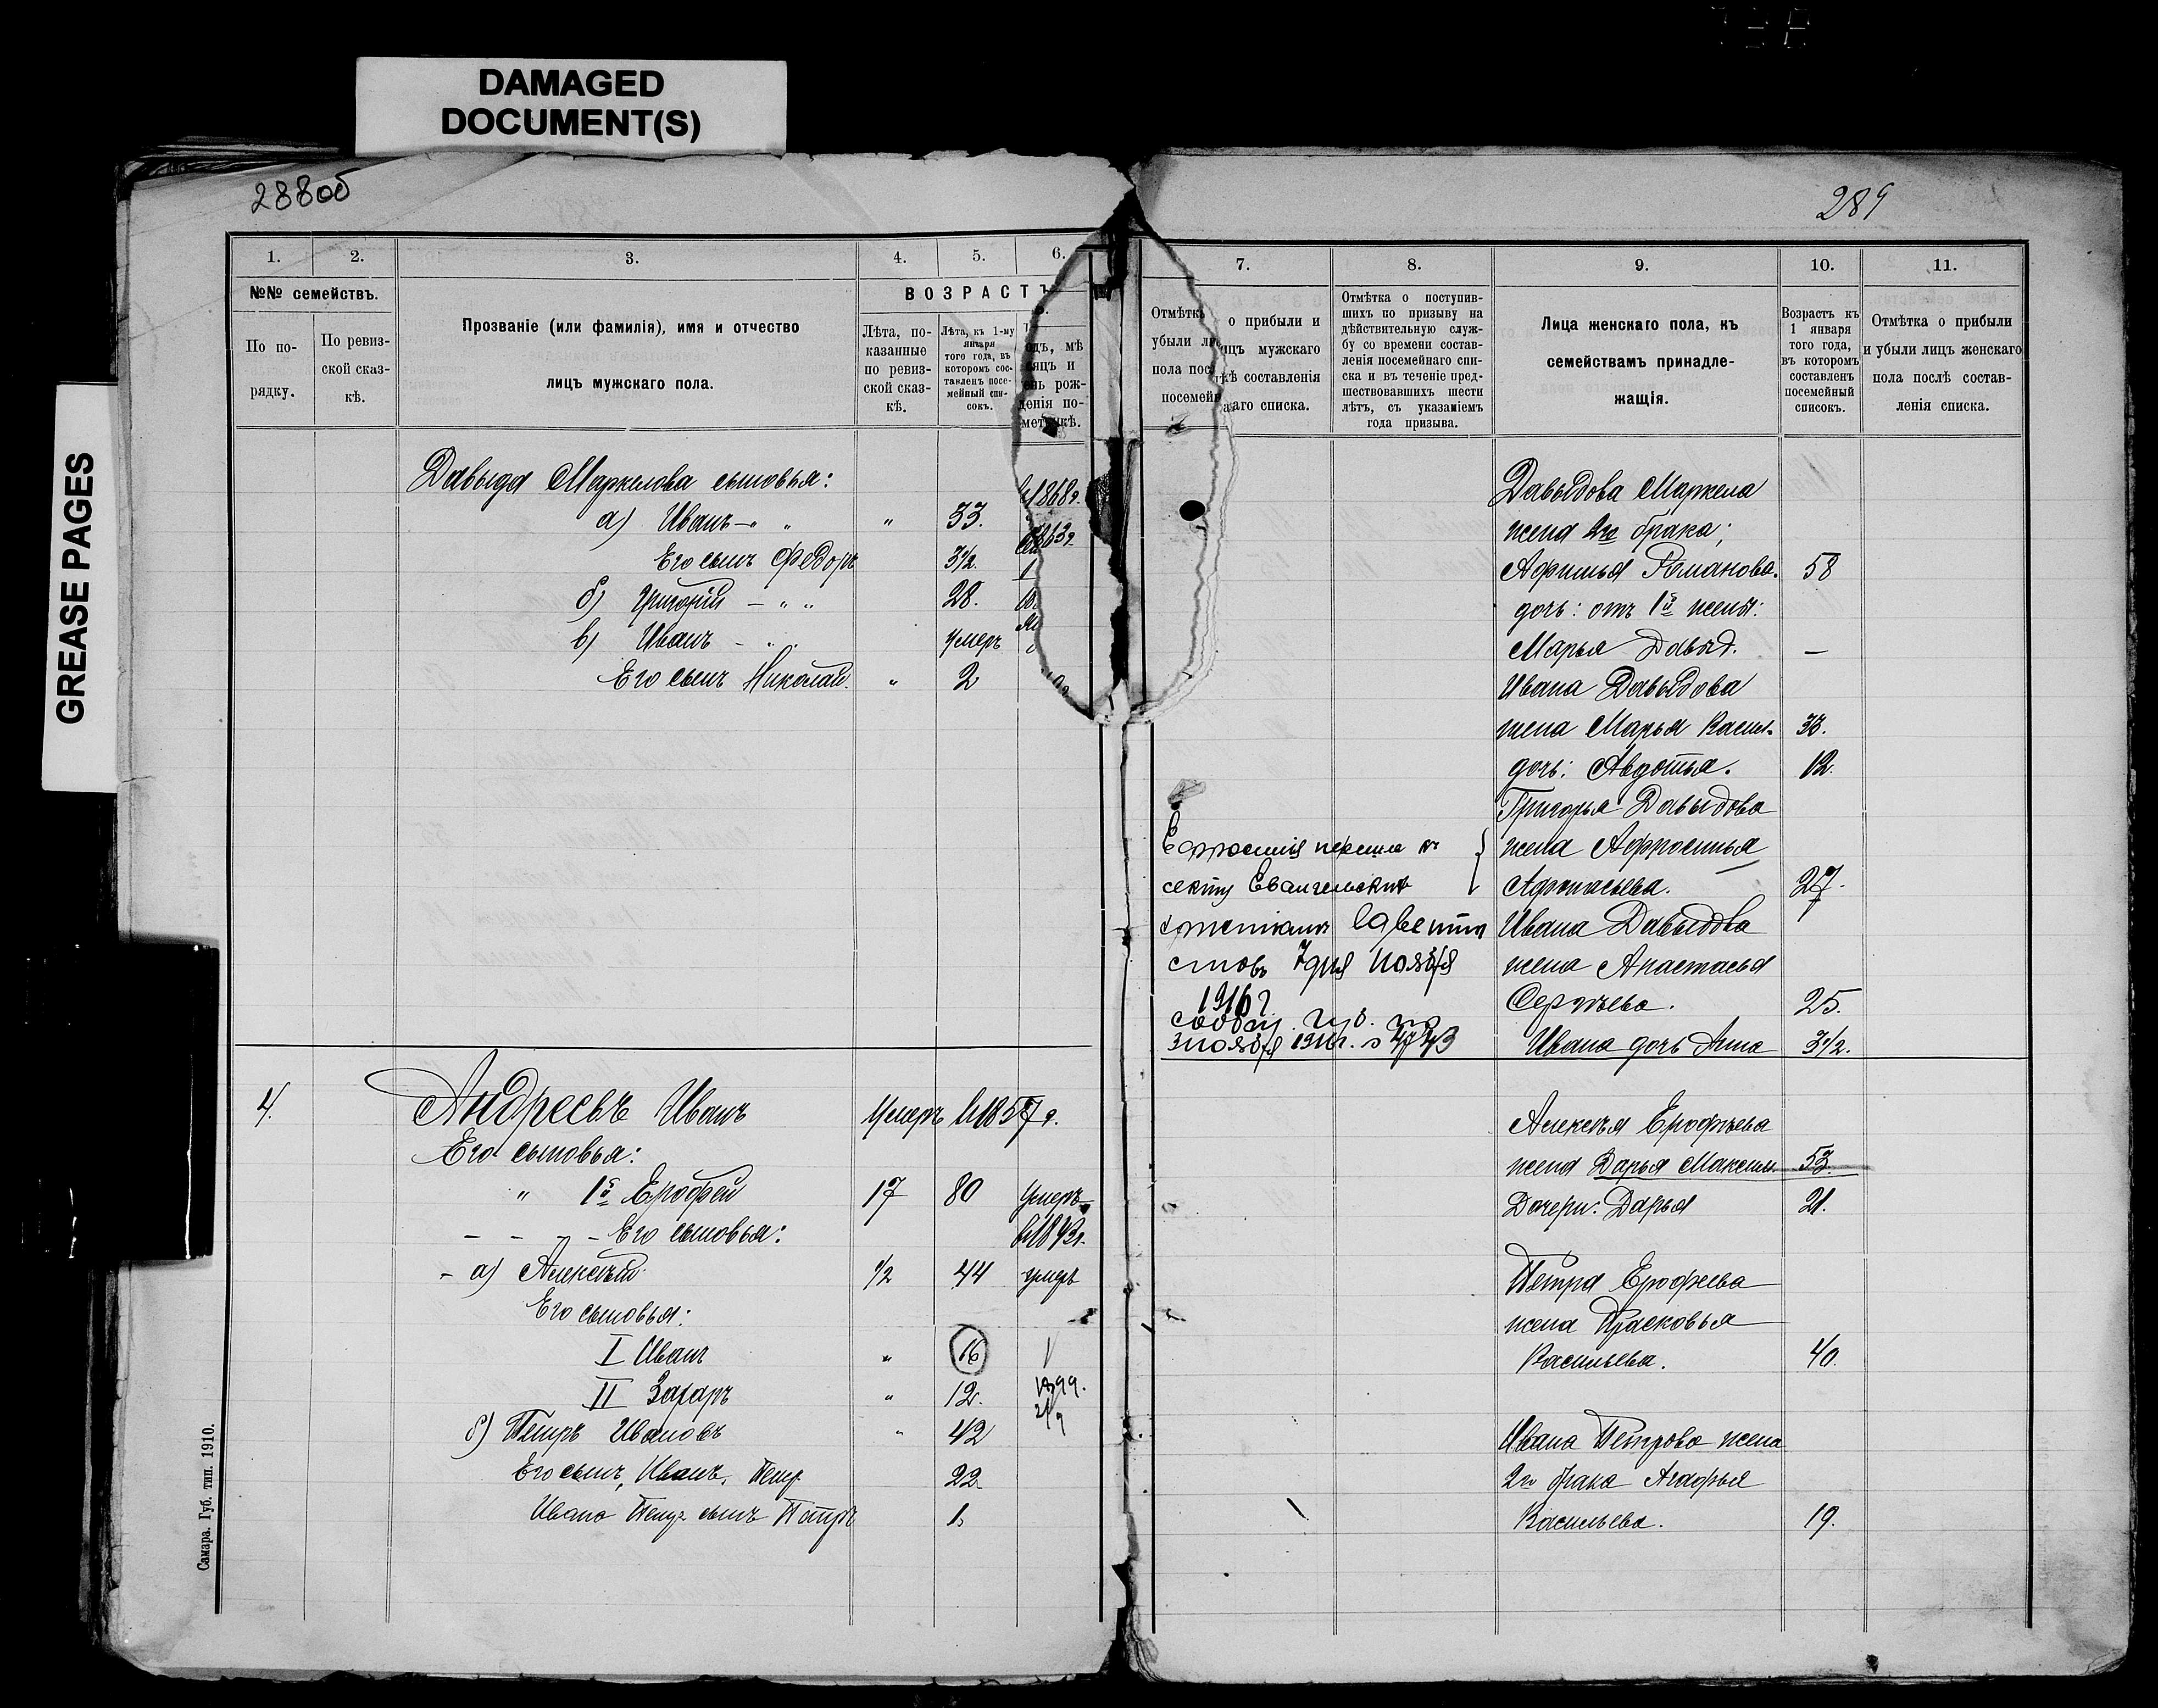 DAMAGED
DOCUMENT(S)
GREASE PAGES
288об
1. 2. 3. 4. 5. 6.
№№ семействъ.
По по-
рядку.
По ревиз-
ской сказ-
кѣ.
Прозваніе (или фамилія), имя и отчество
лицъ мужскаго пола.
ВОЗРАСТЪ
Лѣта, по-
казанные
по ревиз-
ской сказ-
кѣ.
Лѣта, къ 1-му
января
того года, въ
которомъ сос-
тавленъ посе-
мейный спи-
сокъ.
одъ, мѣ
сяцъ и
ень рож-
денія по-
метрикѣ.
Давыда Маркелова сыновья:
а) Иванъ -"- " " 33. 1868г.
Его сынъ Федоръ 3½.
б) Григорій - " " 28.
в) Иванъ - " " умеръ
Его сынъ Николай. " 2
4. Андреевъ Иванъ Умеръ в 1857г.
Его сыновья:
" 1й Ерофей 17 80 умеръ
- - - - Его сыновья:
- а) Алексѣй ½ 44 умеръ
Его сыновья:
I Иванъ " 16 V
II Захаръ " 12. 1899.
б) Петръ Ивановъ " 42
Его сынъ, Иванъ. Петр 22
Ивана Петр. сынъ Петръ 1.
Самара. Губ. тип. 1910.
289
7. 8. 9. 10. 11.
Отмѣтка о прибыли и
убыли лицъ мужскаго
пола послѣ составленія
посемейнаго списка.
Отмѣтка о поступив-
шихъ по призыву на
дѣйствительную служ-
бу со времени состав-
ленія посемейнаго спи-
ска и въ теченіе пред-
шествовавшихъ шести
лѣтъ, съ указаніемъ
года призыва.
Лица женскаго пола, къ
семействамъ принадле-
жащія.
Возрастъ къ
1 января
того года,
въ которомъ
составленъ
посемейный
списокъ.
Отмѣтка о прибыли
и убыли лицъ женскаго
пола послѣ состав-
ленія списка.
Давыдова Маркела
жена 2го брака;
Афимья Романова. 58
дочь: отъ 1й жены:
Марья Давыд. —
Ивана Давыдова
жена Марья Васил. 33.
дочь: Авдотья. 12.
Григорья Давыдова
жена Аффросинья
Афонасьева. 27.
Ивана Давыдова
жена Анастасья
Сергѣева. 25.
Ивана дочь Анна 3½.
секту Евангельскихъ
христіанъ
7 дня Ноября
1916 г.
Алексѣя Ерофѣева
жена Дарья Максим. 53.
Дочери: Дарья 21.
Петра Ерофеева
жена Прасковья
Васильева. 40.
Ивана Петрова жена
2го брака Агафья
Васильева. 19.